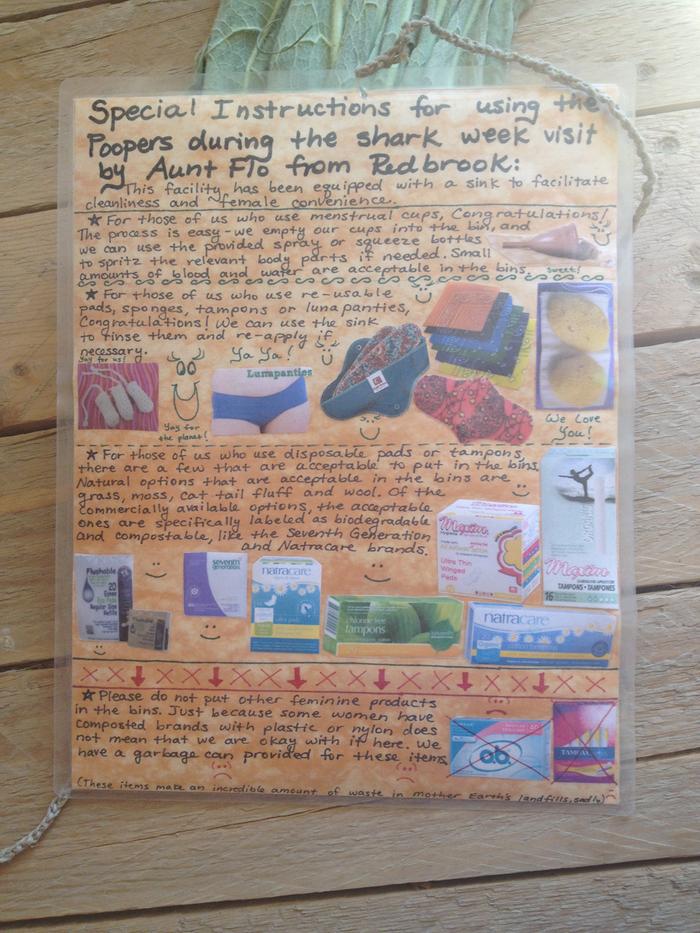 Special Instructions for using the
Poopers during the shark week visit
by Aunt Flo from Redbrook:
This facility has been equipped with a sink to facilitate
cleanliness and female convenience.
★ For those of us who use menstrual cups, Congratulations!
The process is easy - we empty our cups into the bin, and
we can use the provided spray or squeeze bottles
to spritz the relevant body parts if needed. Small
amounts of blood and water are acceptable in the bins.
Sweet!
★ For those of us who use re-usable
pads, sponges, tampons or lunapanties,
Congratulations! We can use the sink
to rinse them and re-apply if
necessary.
Yay for us!
Ya Ya!
Lunapanties
Yay for
the planet!
We Love
You!
★ For those of us who use disposable pads or tampons,
there are a few that are acceptable to put in the bins.
Natural options that are acceptable in the bins are
grass, moss, cat tail fluff and wool. Of the
commercially available options, the acceptable
ones are specifically labeled as biodegradable
and compostable, like the Seventh Generation
and Natracare brands.
Maxim
Ultra Thin
Winged
Pads
Maxim
TAMPONS • TAMPONES
16
Flushable
20
Regular Size
Refills
seventh
generation
natracare
chlorine free
tampons
natracare
★ Please do not put other feminine products
in the bins. Just because some women have
composted brands with plastic or nylon does
not mean that we are okay with it here. We
have a garbage can provided for these items
o.b.
TAMPAX
(These items make an incredible amount of waste in mother Earth's landfills, sadly)